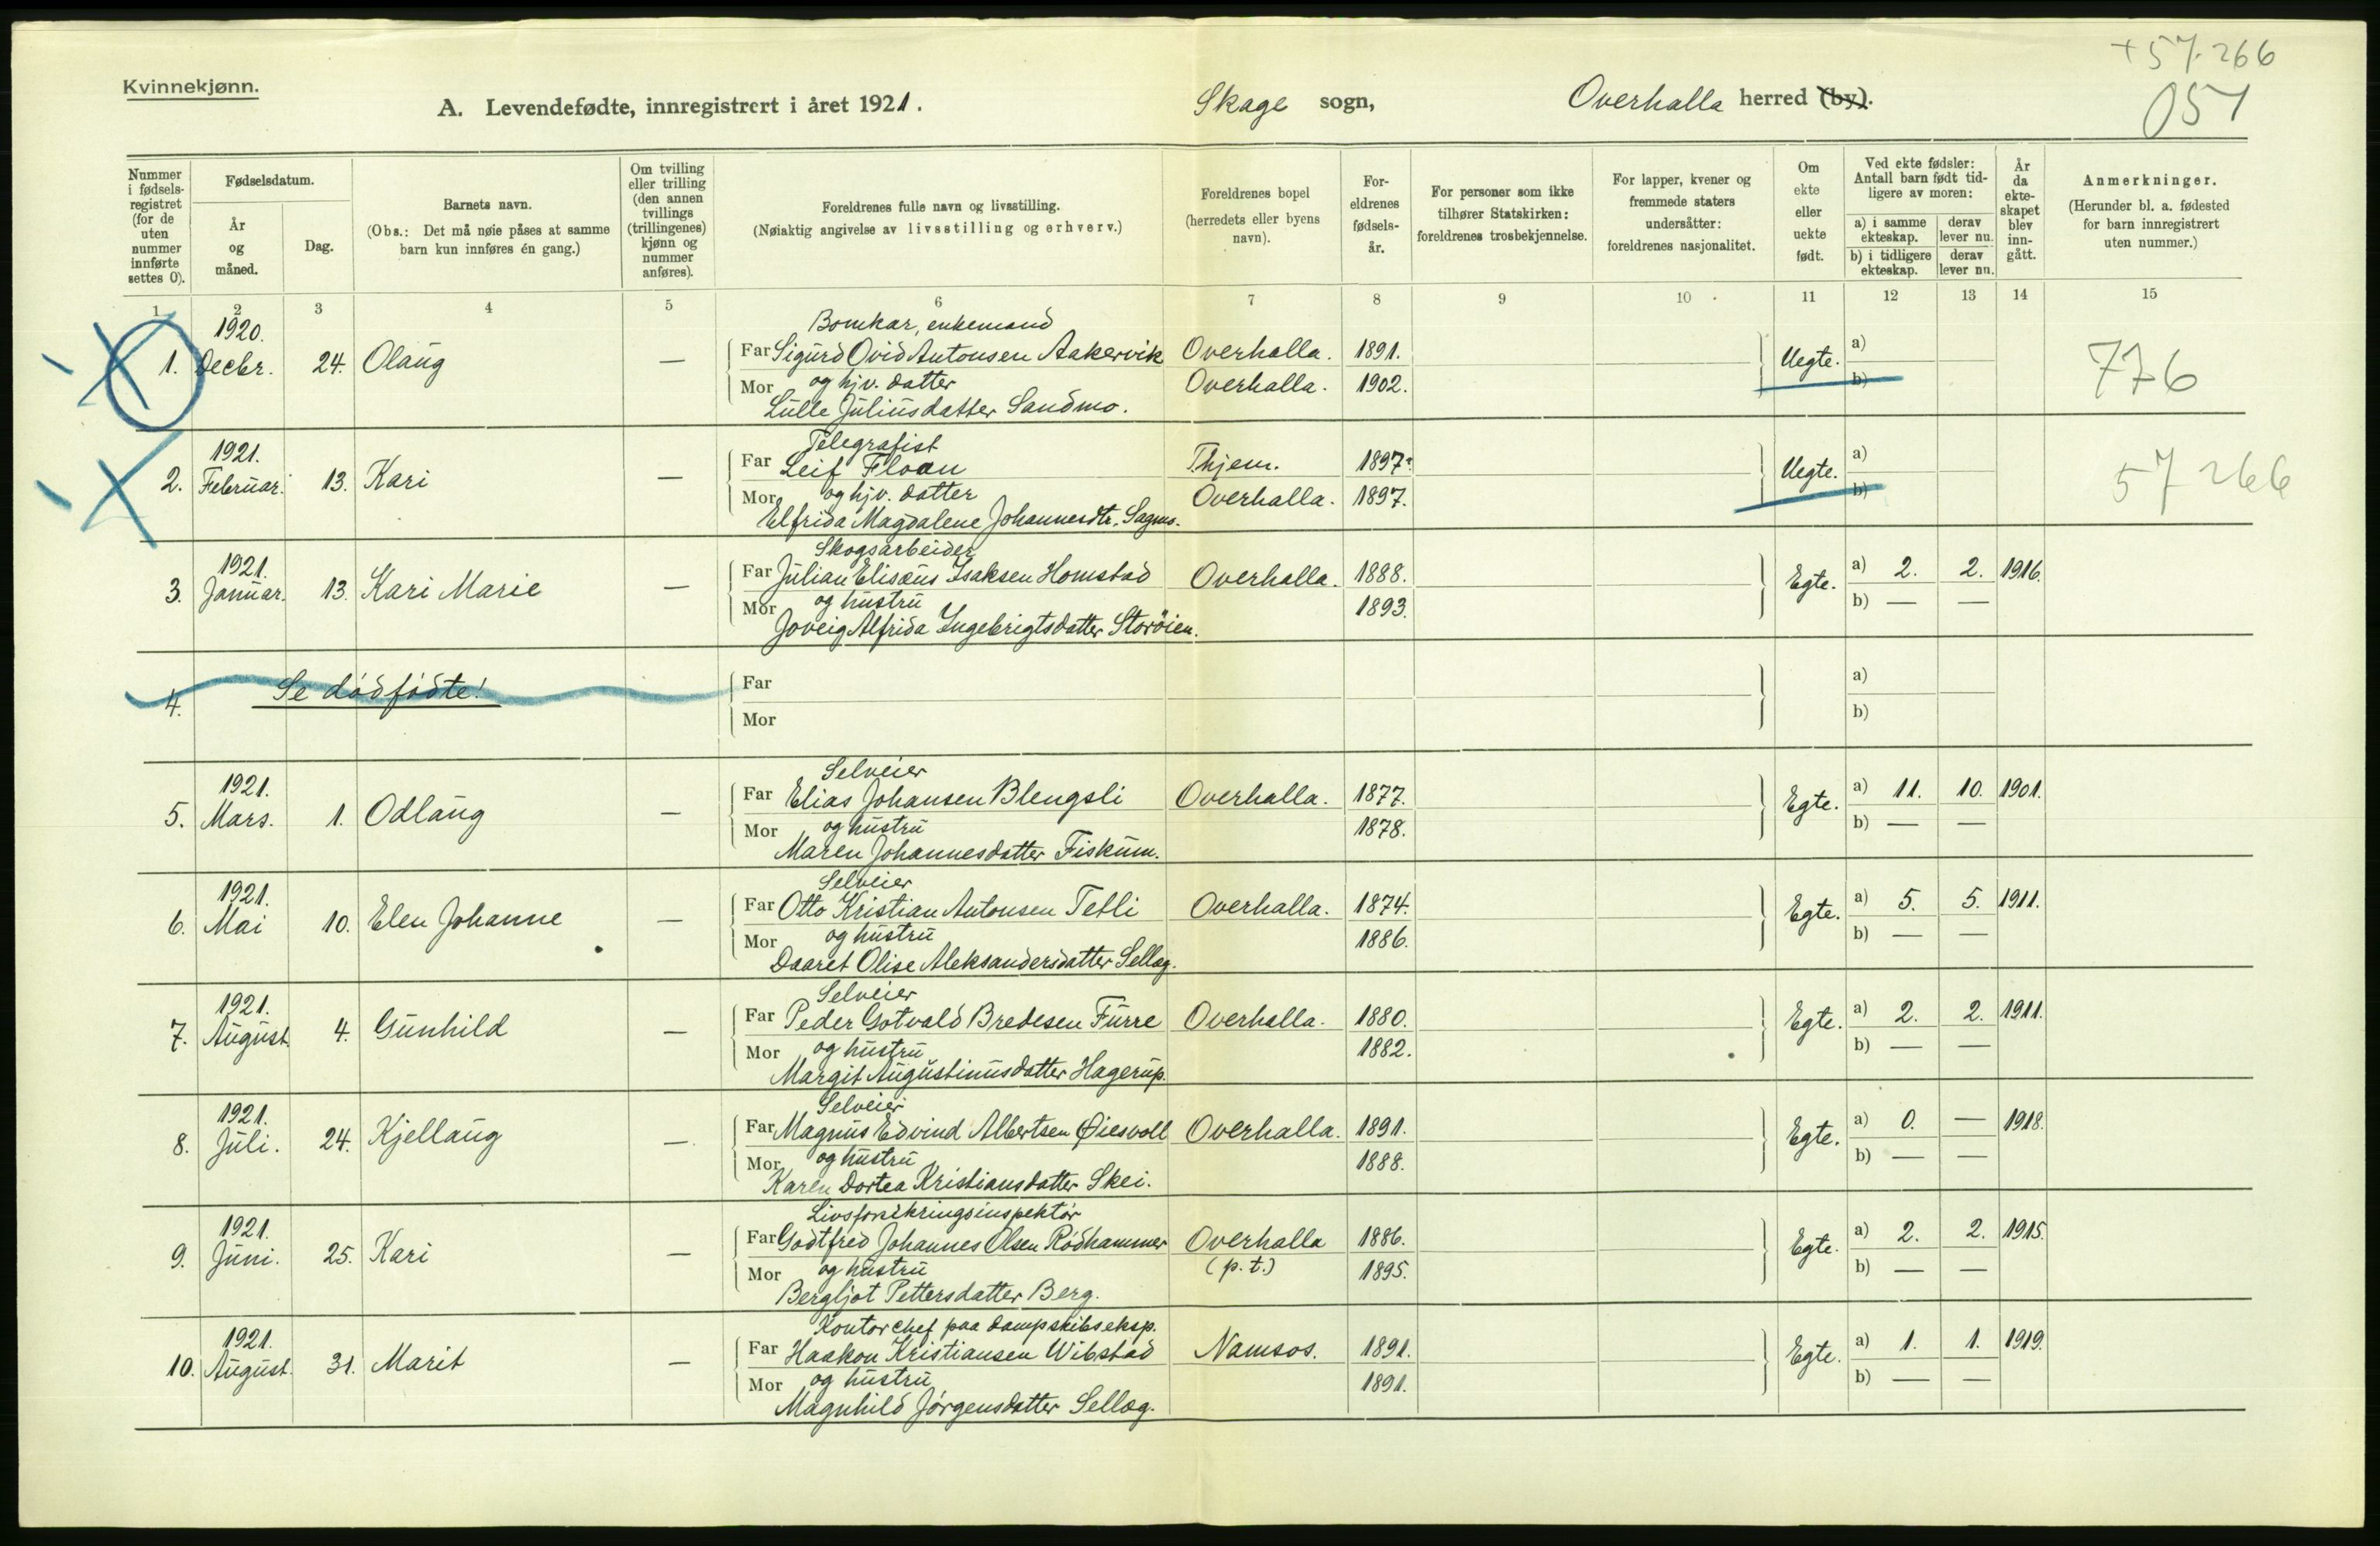 + 57.266
051
Kvinnekjønn.
A. Levendefødte, innregistrert i året 1921. Skage sogn, Overhalla herred (by).
Nummer i fødselsregistret (for de uten nummer innførte settes 0).
Fødselsdatum.
År og måned.
Dag.
Barnets navn.
(Obs.: Det må nøie påses at samme barn kun innføres én gang.)
Om tvilling eller trilling (den annen tvillings (trillingenes) kjønn og nummer anføres).
Foreldrenes fulle navn og livsstilling.
(Nøiaktig angivelse av livsstilling og erhverv.)
Foreldrenes bopel (herredets eller byens navn).
Foreldrenes fødselsår.
For personer som ikke tilhører Statskirken: foreldrenes trosbekjennelse.
For lapper, kvener og fremmede staters undersåtter: foreldrenes nasjonalitet.
Om ekte eller uekte født.
Ved ekte fødsler: Antall barn født tidligere av moren:
a) i samme ekteskap. derav lever nu.
b) i tidligere ekteskap. derav lever nu.
År da ekteskapet blev inngått.
Anmerkninger.
(Herunder bl. a. fødested for barn innregistrert uten nummer.)
1 2 3 4 5 6 7 8 9 10 11 12 13 14 15
1920. Bomkar, enkemand
1. Decbr. 24. Olaug — Far Sigurd Ovid Antonsen Aakervik Overhalla. 1891. Uegte. a) 776
Mor og hjv. datter Overhalla. 1902. b)
Lulle Juliusdatter Sandmo.
1921. Telegrafist
2. Februar. 13. Kari — Far Leif Floan Thjem. 1897. Uegte. a) 57 266
Mor og hjv. datter Overhalla. 1897. b)
Elfrida Magdalene Johannesdtr. Sagmo.
1921. Skogsarbeider
3. Januar. 13. Kari Marie — Far Julian Elisæus Isaksen Homstad Overhalla. 1888. Egte. a) 2. 2. 1916.
Mor og hustru 1893. b) — —
Joveig Alfrida Ingebrigtsdatter Storöien.
4. Se dódfódte! Far a)
Mor b)
1921. Selveier
5. Mars. 1. Odlaug — Far Elias Johansen Blengsli Overhalla. 1877. Egte. a) 11. 10. 1901.
Mor og hustru 1878. b) — —
Maren Johannesdatter Fiskum.
1921. Selveier
6. Mai 10. Elen Johanne — Far Otto Kristian Antonsen Tetli Overhalla. 1874. Egte. a) 5. 5. 1911.
Mor og hustru 1886. b) — —
Daaret Olise Aleksandersdatter Sellæg.
1921. Selveier
7. August. 4. Gunhild — Far Peder Gotvald Bredesen Furre Overhalla. 1880. Egte. a) 2. 2. 1911.
Mor og hustru 1882. b) — —
Margit Augustinusdatter Hagerup.
1921. Selveier
8. Juli. 24. Kjellaug — Far Magnus Edvind Albertsen Øiesvoll Overhalla. 1891. Egte. a) 0. — 1918.
Mor og hustru 1888. b) — —
Karen Dortea Kristiansdatter Skei.
1921. Livsforsikringsinspektör
9. Juni. 25. Kari — Far Godtfred Johannes Olsen Ródhammer Overhalla 1886. Egte. a) 2. 2. 1915.
Mor og hustru (p. t.) 1895. b) — —
Bergljot Pettersdatter Berg.
1921. Kontorchef paa dampskibseksp.
10. August. 31. Marit — Far Haakon Kristiansen Wibstad Namsos. 1891. Egte. a) 1. 1. 1919.
Mor og hustru 1891. b) — —
Magnhild Jórgensdatter Sellæg.